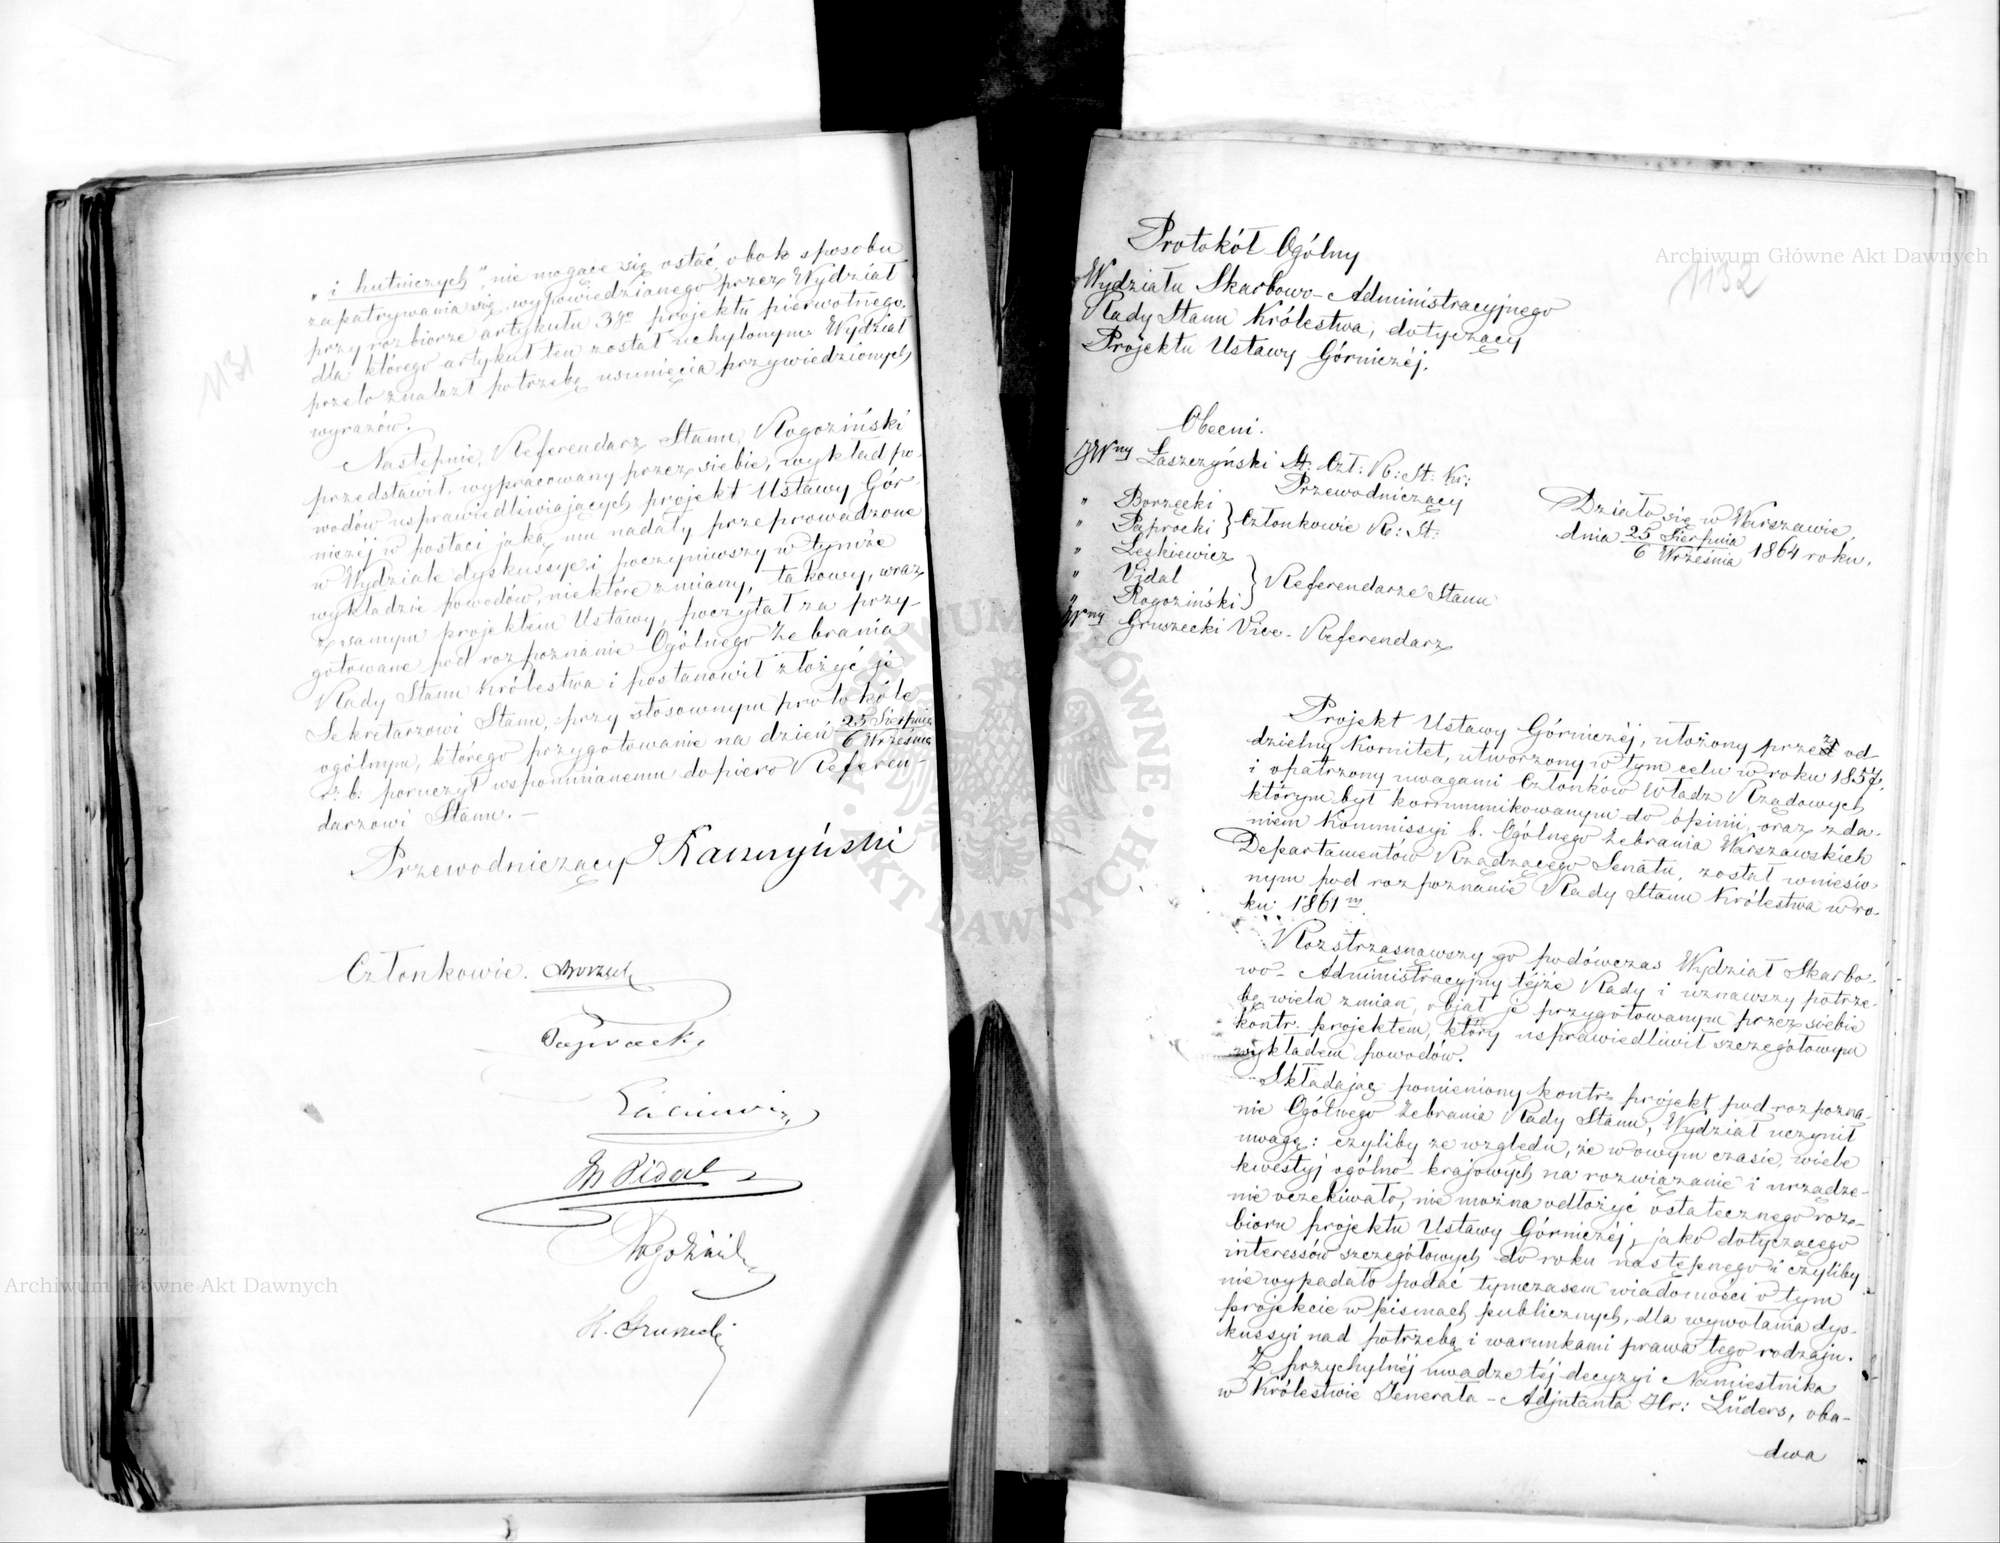 1131
„i hutniczych”, nie mogące się ostać, obok sposobu
zapatrywania się, wypowiedzianego przez Wydział
przy rozbiorze artykułu 3go projektu pierwotnego,
dla którego artykuł ten został uchylonym. Wydział
przeto znalazł potrzebę usunięcia przywiedzionych
wyrazów.
Następnie, Referendarz Stanu, Rogoziński
przedstawił, wypracowany przez siebie, wykład po-
wodów usprawiedliwiających projekt Ustawy Gór-
niczéj w postaci jaką mu nadały przeprowadzone
w Wydziale dyskussye i poczyniwszy w tymże
wykładzie powodów, niektóre zmiany, takowy, wraz
z samym projektem Ustawy, poczytał za przy-
gotowane pod rozpoznanie Ogólnego Zebrania
Rady Stanu Królestwa i postanowił złożyć je
Sekretarzowi Stanu, przy stosownym protokóle
ogólnym, którego przygotowanie na dzień 25 Sierpnia / 6 Września
r. b. poruczył wspomnianemu dopiero Referen-
darzowi Stanu. —
Przewodniczący
Członkowie.
M Vidal
Rogoziński
K. Gruszecki
1132
Protokół Ogólny
Wydziału Skarbowo-Administracyjnego
Rady Stanu Królestwa, dotyczący
Projektu Ustawy Górniczéj.
Obecni.
JWny Łaszczyński St: Czł: R: St: Kr:
Przewodniczący
" Borzęcki
" Paprocki } Członkowie R: St:
" Leskiewicz
" Vidal } Referendarze Stanu
" Rogoziński
Wny Gruszecki Vice-Referendarz
Działo się w Warszawie,
dnia 25 Sierpnia / 6 Września 1864 roku.
Projekt Ustawy Górniczéj, ułożony przez od-
dzielny Komitet, utworzony w tym celu w roku 1857,
i opatrzony uwagami Członków Władz Rządowych
którym był kommunikowanym do opinii, oraz zda-
niem Kommissyi b. Ogólnego Zebrania Warszawskich
Departamentów Rządzącego Senatu, został wniesio-
nym pod rozpoznanie Rady Stanu Królestwa w ro-
ku 1861m.
Rozstrząsnąwszy go podówczas Wydział Skarbo-
wo-Administracyjny téjże Rady i uznawszy potrze-
bę wielu zmian, objął je przygotowanym przez siebie
kontr-projektem, który usprawiedliwił szczegółowym
wykładem powodów.
Składając pomieniony kontr-projekt pod rozpozna-
nie Ogólnego Zebrania Rady Stanu, Wydział uczynił
uwagę: czyliby ze względu, że w owym czasie, wiele
kwestyj ogólno-krajowych na rozwiązanie i urządze-
nie oczekiwało, nie można odłożyć ostatecznego roz-
bioru projektu Ustawy Górniczéj, jako dotyczącego
interessów szczegółowych do roku następnego i czyliby
nie wypadało podać tymczasem wiadomości o tym
projekcie w pismach publicznych, dla wywołania dys-
kussyi nad potrzebą i warunkami prawa tego rodzaju.
Z przychylnéj uwadze téj decyzyi Namiestnika
w Królestwie Jenerała-Adjutanta Hr: Lüders, oba-
dwa
Archiwum Główne Akt Dawnych
Archiwum Główne Akt Dawnych
ARCHIWUM GŁÓWNE
AKT DAWNYCH